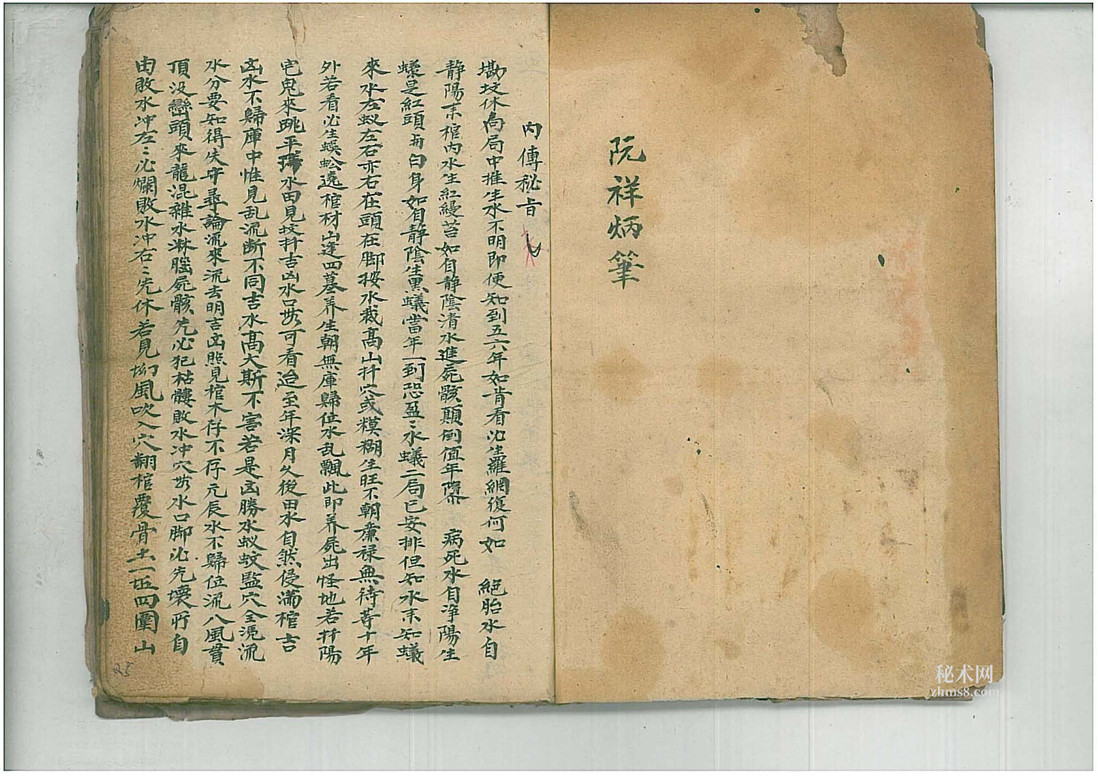 阮祥炳筆
內傳秘旨
塲坟休局局中推生水不明即便知到五六年如肯看必生羅網復何如 絕胎水自
静陽來棺内水生紅縵苔如自静陰清水進屍骸顛倒值年際 病死水自淨陽生
蟻是紅頭和白身如自静陰生黑蟻當年一到恐盈〻水蟻一局已安排但知水來知蟻
來水左蟻左右亦右在頭在脚按水裁高山扦穴或糢糊生旺不朝廉祿無待等十年
外若看必生蜈蚣遶棺材山逢四墓养生朝無庫歸位水乱飄此即养屍出怪地若扦陽
宅鬼來跳平瑒水田見坟扦吉凶水口或可看迨至年深月久後田水自然侵满棺吉
凶水不歸庫中惟見乱流断不同吉水高大斯不害若是凶勝水蚁蚊監穴全凴流
水分要如得失守尋論流來流去明吉凶照見棺木存不存元辰水不歸位流八風貫
頂没巒頭來龍混雜水淋腦屍骸先必犯枯髏敗水冲穴水口脚必先壞所自
由敗水冲左〻必爛敗水冲右〻先休若見坳風吹入穴翻棺覆骨土一坵四圍山
25
秘术网
zhms8.com